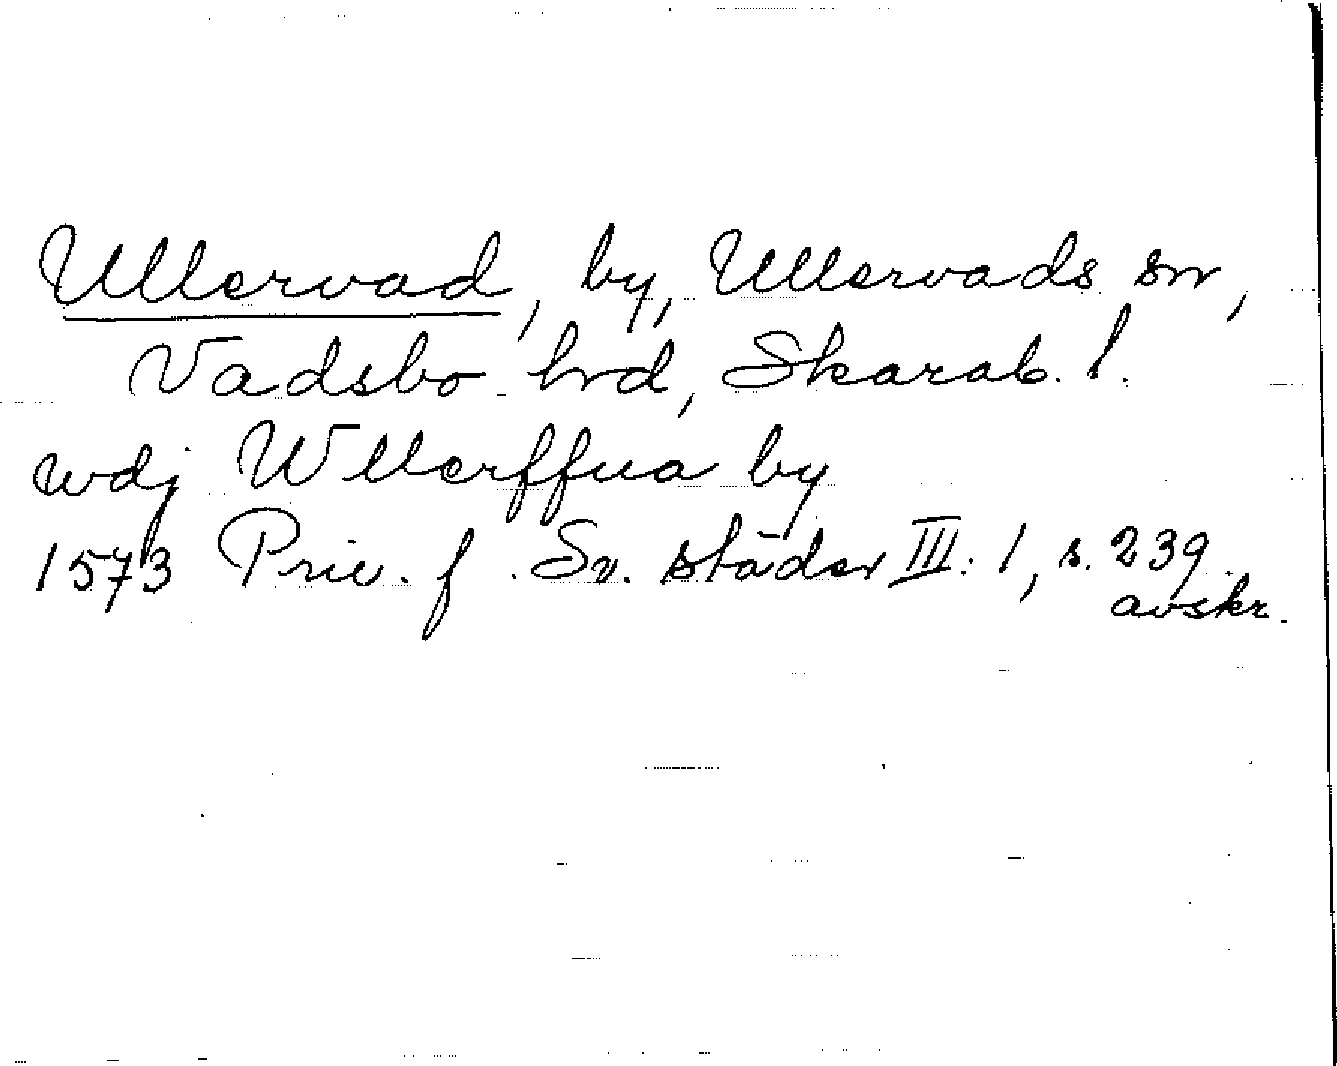 Ullervad, by, Ullervads sn,
Vadsbo hrd, Skarab. l.
wdj Wllerffua by
1573 Priv. f. Sv. städer III: 1, s. 239.
avskr.